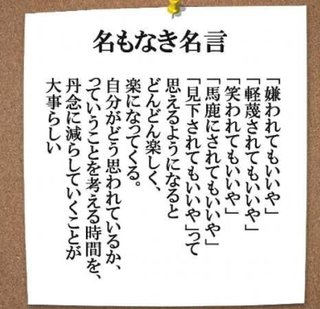 名もなき名言
「嫌われてもいいや」
「軽蔑されてもいいや」
「笑われてもいいや」
「馬鹿にされてもいいや」
「見下されてもいいや」って
思えるようになると
どんどん楽しく、
楽になってくる。
自分がどう思われているか、
っていうことを考える時間を、
丹念に減らしていくことが
大事らしい